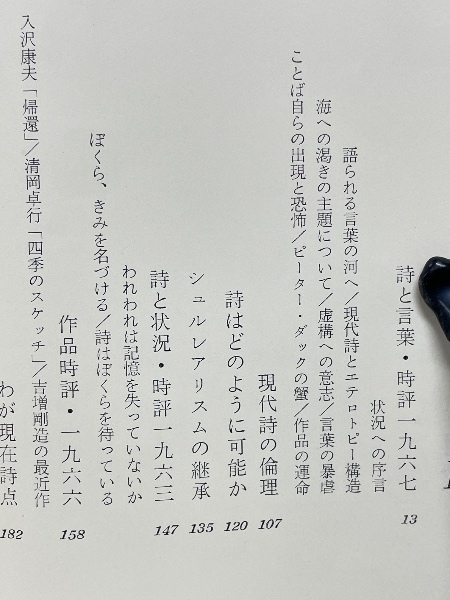 詩と言葉・時評一九六七 13
状況への序言
語られる言葉の河へ/現代詩とエテロトピー構造
海への渇きの主題について/虚構への意志/言葉の暴虐
ことば自らの出現と恐怖/ピーター・ダックの蟹/作品の運命
現代詩の倫理 107
詩はどのように可能か 120
シュルレアリスムの継承 135
詩と状況・時評一九六三 147
われわれは記憶を失っていないか
ぼくら、きみを名づける/詩はぼくらを待っている
作品時評・一九六六 158
入沢康夫「帰還」/清岡卓行「四季のスケッチ」/吉増剛造の最近作
わが現在詩点 182